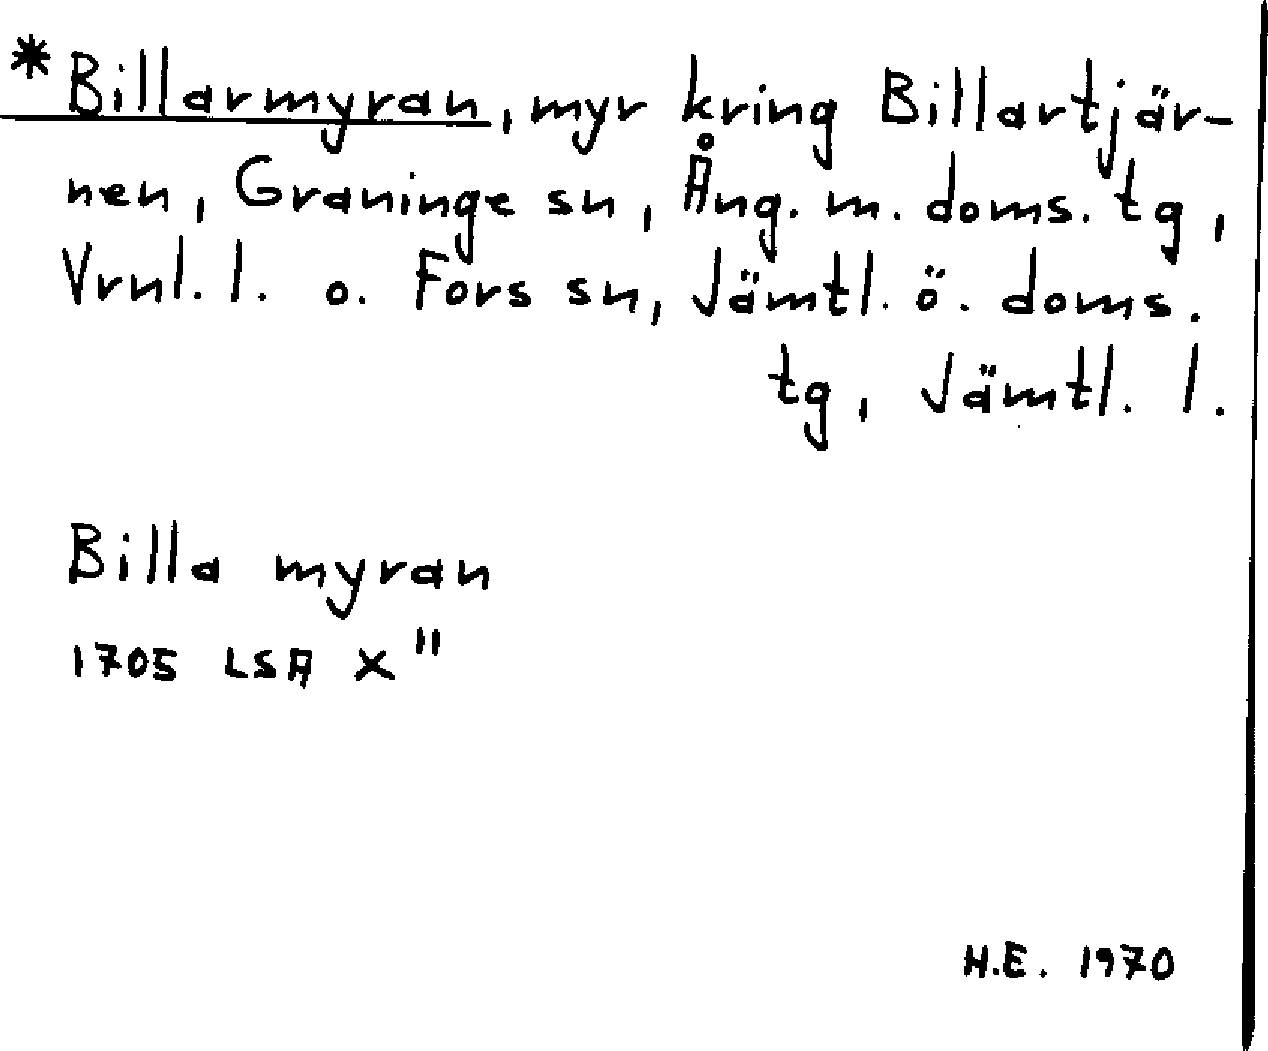 *Billarmyran, myr kring Billartjär-
nen, Graninge sn, Ång. m. doms. tg,
Vrnl. l. o. Fors sn, Jämtl. ö. doms.
tg, Jämtl. l.
Billa myran
1705 LSA X"
H.E. 1970